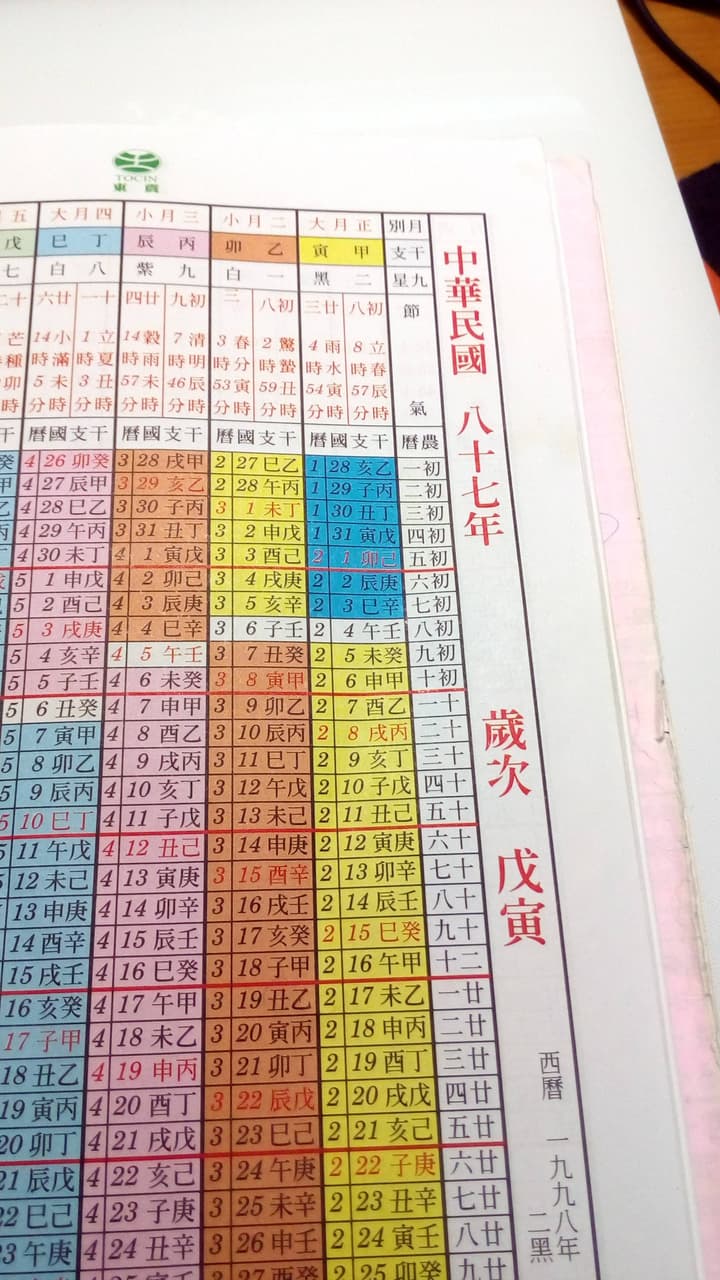 TOCIN
東震
中華民國 八十七年 歲次 戊寅
西曆 一九九八年
二黑
月別 正月大 二月小 三月小 四月大 五
干支 甲寅 乙卯 丙辰 丁巳 戊
九星 二黑 一白 九紫 八白 七
節氣
初八 立春 8時57分 辰時
廿三 雨水 4時54分 寅時
初八 驚蟄 2時59分 丑時
三 春分 3時53分 寅時
初九 清明 7時46分 辰時
廿四 穀雨 14時57分 未時
十一 立夏 1時3分 丑時
廿六 小滿 14時5分 未時
農曆 干支國曆 干支國曆 干支國曆 干支國曆 干
初一 乙亥 1 28 乙巳 2 27 甲戌 3 28 癸卯 4 26 癸
初二 丙子 1 29 丙午 2 28 乙亥 3 29 甲辰 4 27 甲
初三 丁丑 1 30 丁未 3 1 丙子 3 30 乙巳 4 28 乙
初四 戊寅 1 31 戊申 3 2 丁丑 3 31 丙午 4 29
初五 己卯 2 1 己酉 3 3 戊寅 4 1 丁未 4 30
初六 庚辰 2 2 庚戌 3 4 己卯 4 2 戊申 5 1
初七 辛巳 2 3 辛亥 3 5 庚辰 4 3 己酉 5 2
初八 壬午 2 4 壬子 3 6 辛巳 4 4 庚戌 5 3
初九 癸未 2 5 癸丑 3 7 壬午 4 5 辛亥 5 4
初十 甲申 2 6 甲寅 3 8 癸未 4 6 壬子 5 5
十一 乙酉 2 7 乙卯 3 9 甲申 4 7 癸丑 5 6
十二 丙戌 2 8 丙辰 3 10 乙酉 4 8 甲寅 5 7
十三 丁亥 2 9 丁巳 3 11 丙戌 4 9 乙卯 5 8
十四 戊子 2 10 戊午 3 12 丁亥 4 10 丙辰 5 9
十五 己丑 2 11 己未 3 13 戊子 4 11 丁巳 5 10
十六 庚寅 2 12 庚申 3 14 己丑 4 12 戊午 5 11
十七 辛卯 2 13 辛酉 3 15 庚寅 4 13 己未 12
十八 壬辰 2 14 壬戌 3 16 辛卯 4 14 庚申 13
十九 癸巳 2 15 癸亥 3 17 壬辰 4 15 辛酉 14
二十 甲午 2 16 甲子 3 18 癸巳 4 16 壬戌 15
廿一 乙未 2 17 乙丑 3 19 甲午 4 17 癸亥 16
廿二 丙申 2 18 丙寅 3 20 乙未 4 18 甲子 17
廿三 丁酉 2 19 丁卯 3 21 丙申 4 19 乙丑 18
廿四 戊戌 2 20 戊辰 3 22 丁酉 4 20 丙寅 19
廿五 己亥 2 21 己巳 3 23 戊戌 4 21 丁卯 20
廿六 庚子 2 22 庚午 3 24 己亥 4 22 戊辰 21
廿七 辛丑 2 23 辛未 3 25 庚子 4 23 己巳 22
廿八 壬寅 2 24 壬申 3 26 辛丑 4 24 庚午 23
廿九 癸卯 2 25 癸酉 3 27